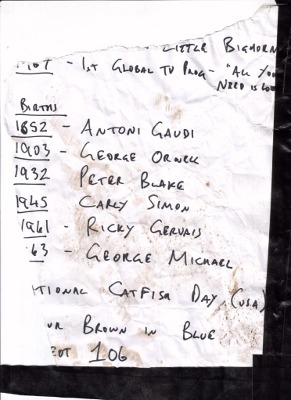 LITTLE BIGHORN
- 1st GLOBAL TV PROG - "ALL YOU
NEED IS LOVE
BIRTHS
1852 - ANTONI GAUDI
1903 - GEORGE ORWELL
1932 PETER BLAKE
1945 CARLY SIMON
1961 - RICKY GERVAIS
63 - GEORGE MICHAEL
TIONAL CATFISH DAY (USA)
UR BROWN IN BLUE
106